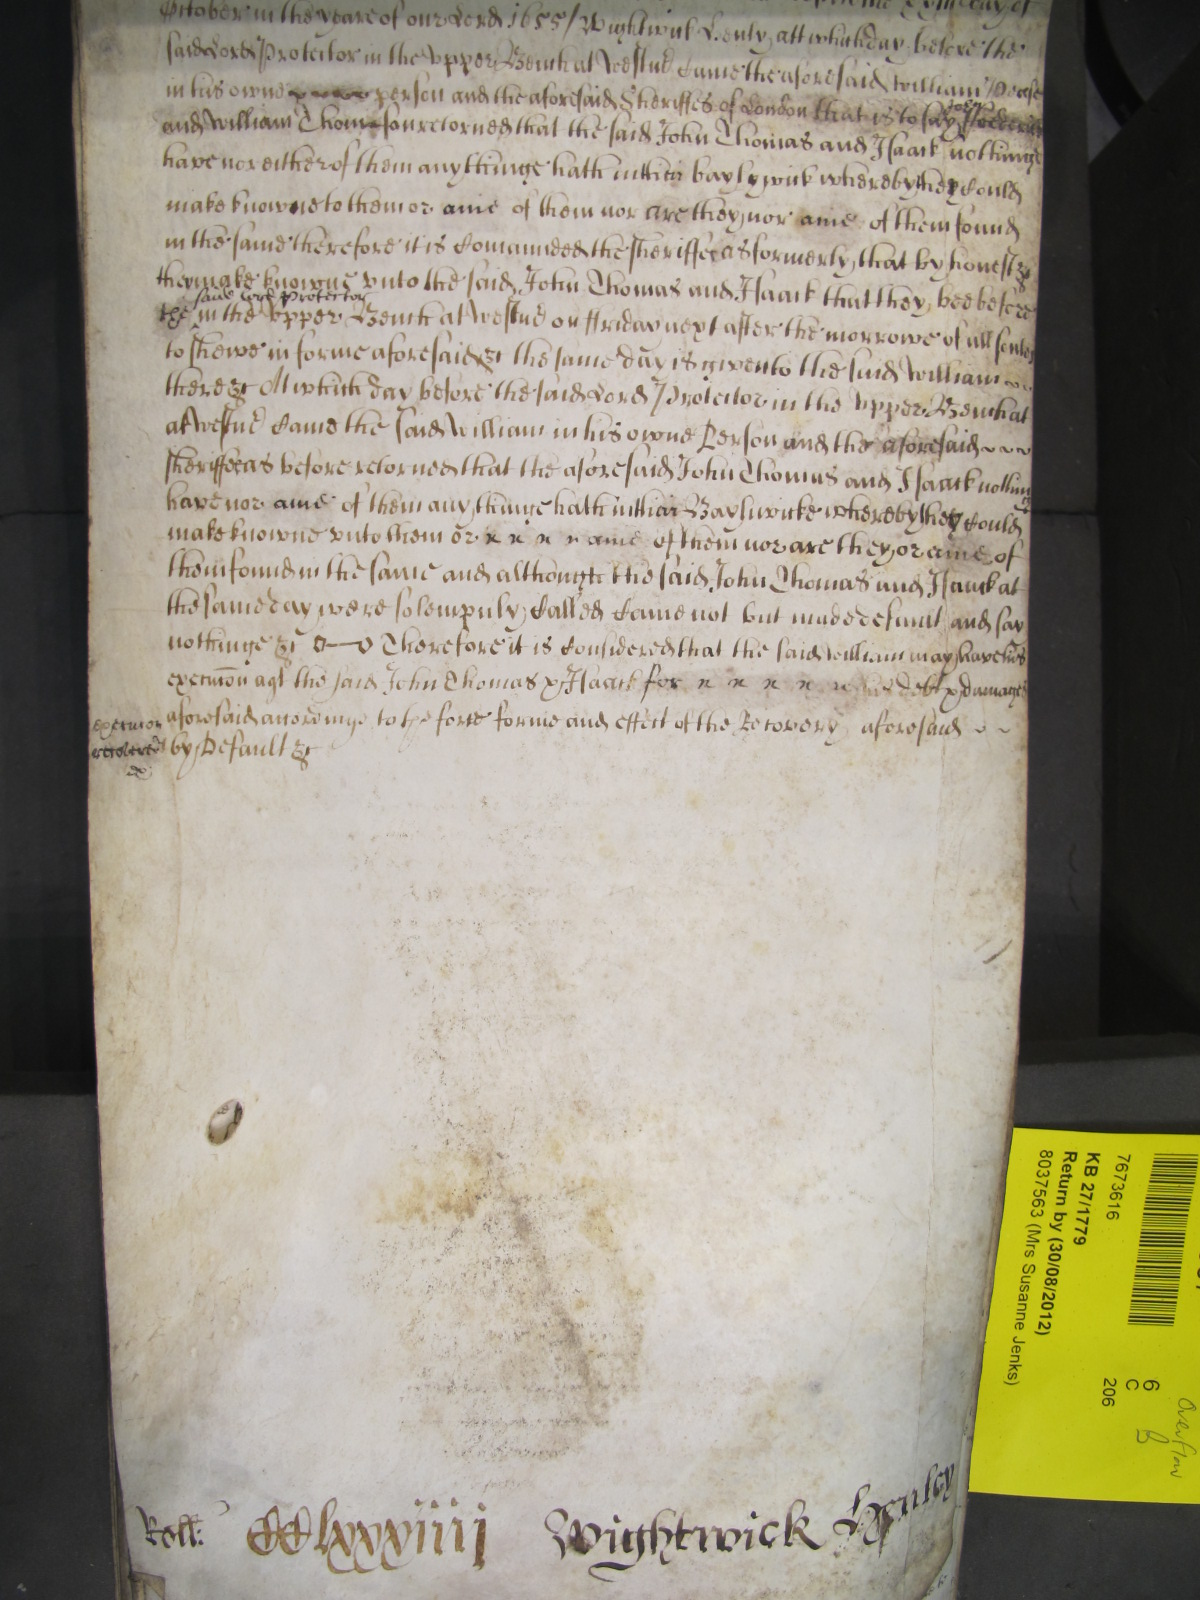 October in the yeare of our Lord 1655 / Wightwick Henly, att which day before the
said Lord Protector in the Upper Bench at Westmr Came the aforesaid William Pease
in his owne person and the aforesaid Sheriffes of London that is to say John
and William Thomson retorned that the said John Thomas and Isaack nothinge
have nor either of them any thinge hath in their baylywick whereby they Could
make knowne to them or anie of them nor are they nor anie of them found
in the same therefore it is Comannded the sheriffes as formerly that by honest &c
they make knowne unto the said John Thomas and Isaack that they bee before
said Lord Protector
the in the Upper Bench at Westmr on ffriday next after the morrowe of all soules
to shewe in forme aforesaid &c the same day is given to the said William
there &c At which day before the said Lord Protector in the Upper Bench at
at Westmr Came the said William in his owne Person and the aforesaid
sheriffes as before retorned that the aforesaid John Thomas and Isaack nothing
have nor anie of them any thinge hath in their Baylywicke whereby they Could
make knowne unto them or anie of them nor are they or anie of
them found in the same and although the said John Thomas and Isaack at
the same day were solempnly Called Came not but made default and say
nothinge &c Therefore it is Considered that the said William may have his
execution agt the said John Thomas & Isaack for his debt & damages
aforesaid accordinge to the force forme and effect of the Recovery aforesaid
by Default &c
execution
Roll: CClxxxiiij Wightwick Henley
7673616
KB 27/1779
Return by (30/08/2012)
8037563 (Mrs Susanne Jenks)
6
C
206
Overflow
B